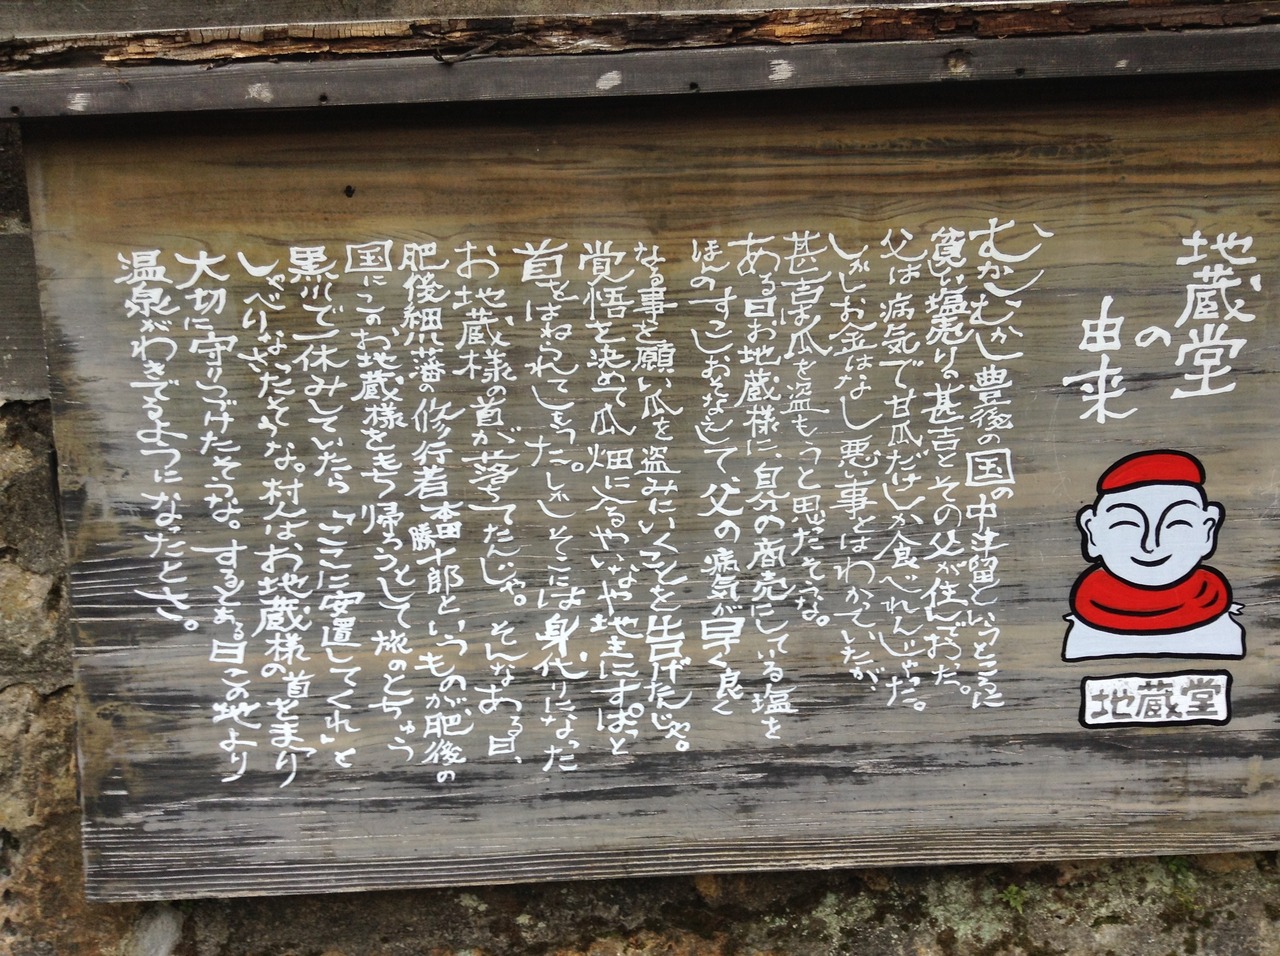 地蔵堂
の
由来
むかしむかし豊後の国の中津留というところに
貧しい塩売りの甚吉とその父が住んでおった。
父は病気で甘瓜だけしか食べれんじゃった。
しかしお金はなし悪い事とはわかっていたが、
甚吉は瓜を盗もうと思ったそうな。
ある日お地蔵様に、自分の商売にしている塩を
ほんのすこしおそなえして、父の病気が早く良く
なる事を願い瓜を盗みにいくことを告げたんじゃ。
覚悟を決めて瓜畑に入るやいなや地主にすぱっと
首をはねられてしもうた。しかしそこには身代りになった
お地蔵様の首が落ちてたんじゃ。そんなある日、
肥後細川藩の修行者本田勝十郎というものが肥後の
国にこのお地蔵様をもち帰ろうとして旅のとちゅう
黒川で一休みしていたら「ここに安置してくれ」と
しゃべりなさったそうな。村人はお地蔵様の首をまつり
大切に守りつづけたそうな。するとある日この地より
温泉がわきでるようになったとさ。
地蔵堂